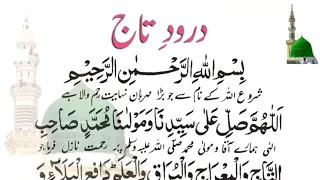 درود تاج
بِسْمِ اللّٰهِ الرَّحْمٰنِ الرَّحِيْمِ
شروع اللہ کے نام سے جو بڑا مہربان نہایت رحم والا ہے
اَللّٰهُمَّ صَلِّ عَلٰى سَيِّدِنَا وَمَوْلٰنَا مُحَمَّدٍ صَاحِبِ
الٰہی ہمارے آقا و مولیٰ محمد صلی اللہ علیہ وسلم پر رحمت نازل فرما جو
التَّاجِ وَالْمِعْرَاجِ وَالْبُرَاقِ وَالْعَلَمِ دَافِعِ الْبَلَآءِ وَ